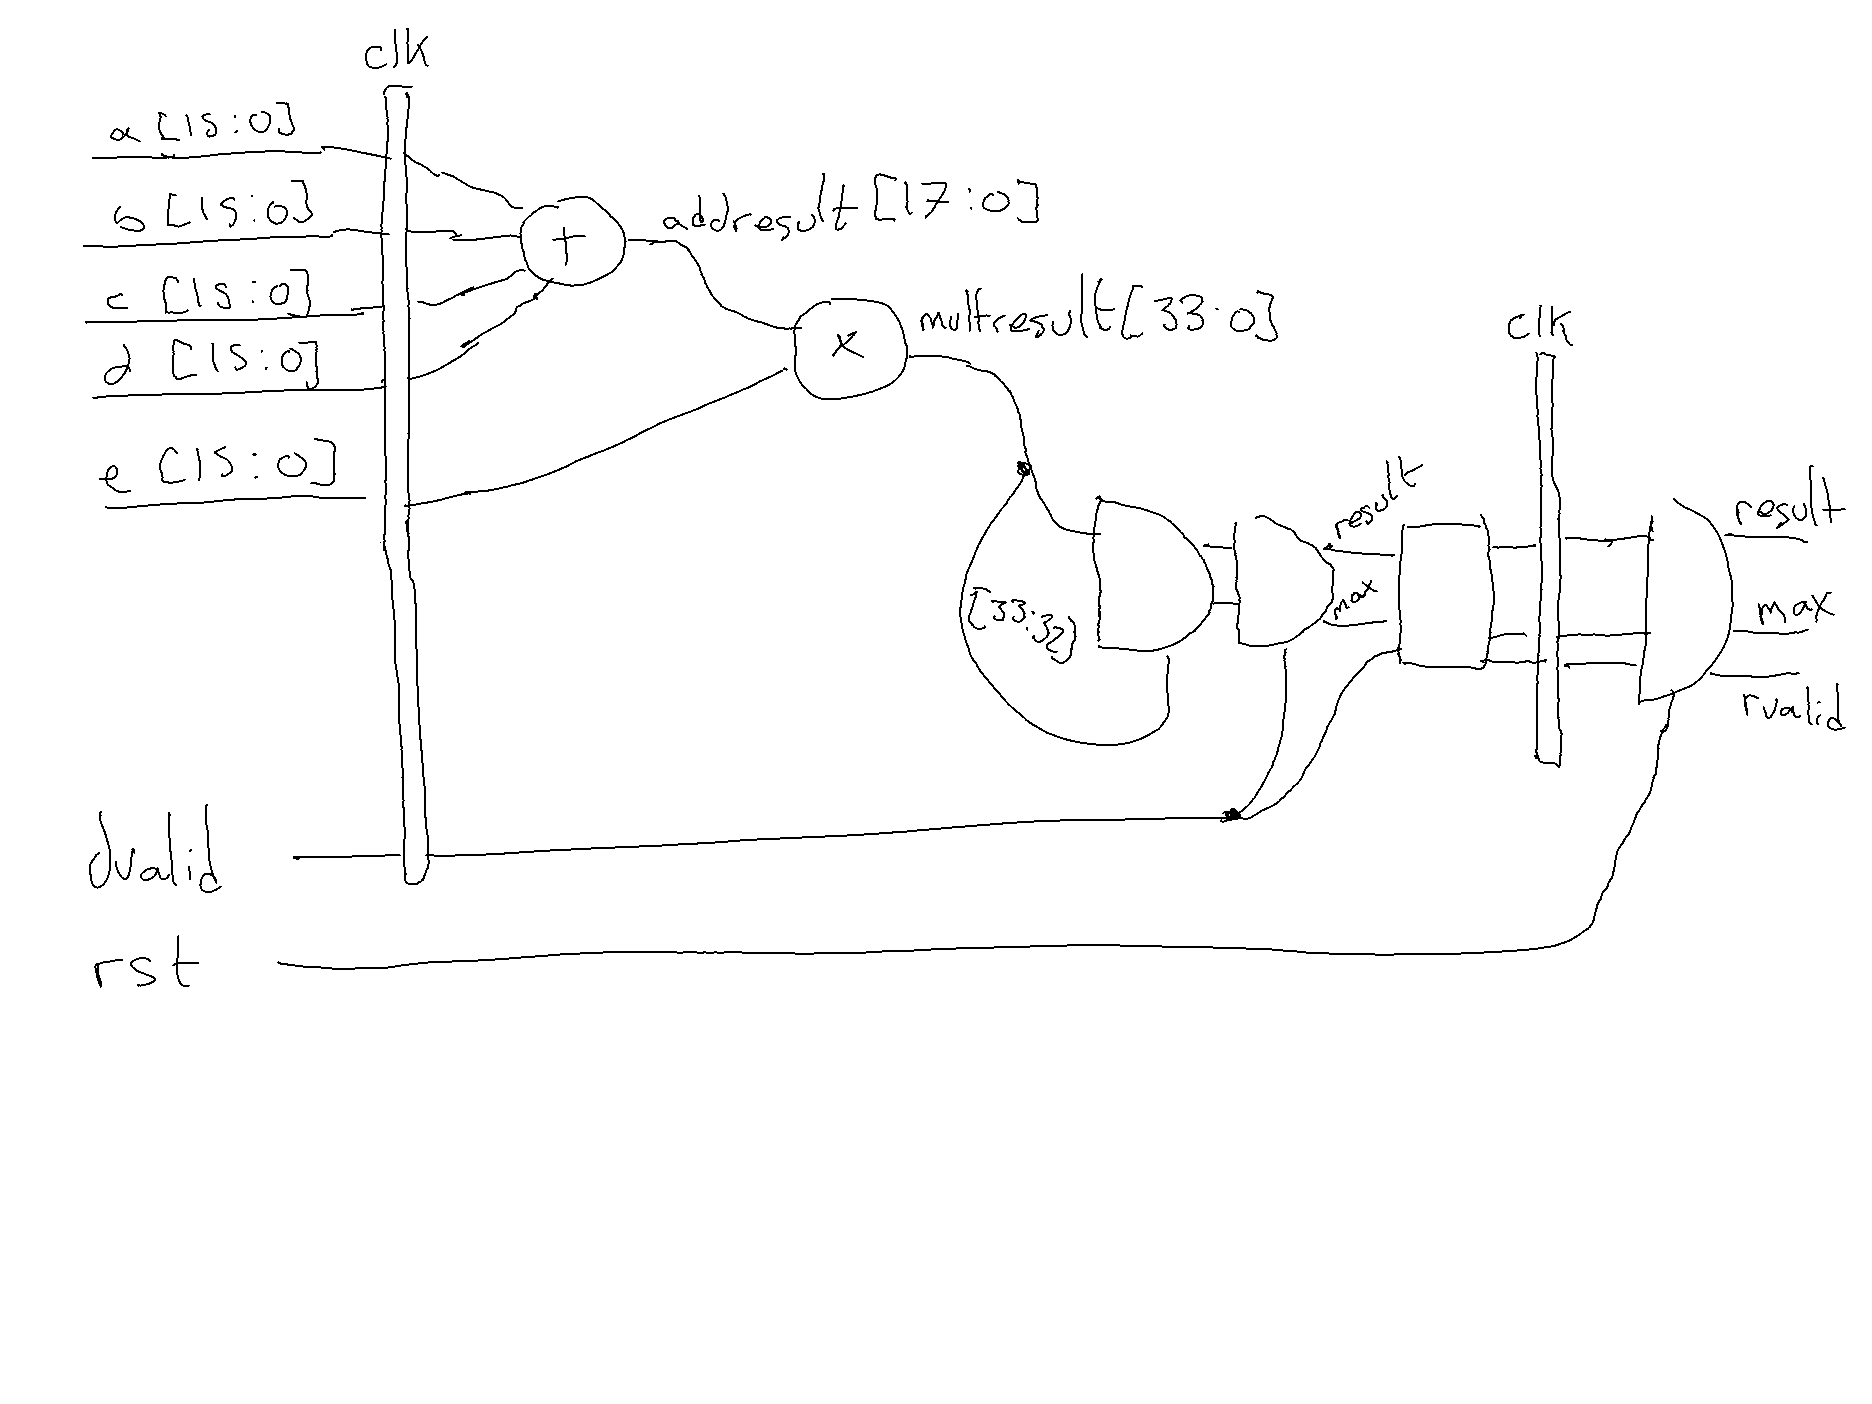 clk
a [15:0]
b [15:0]
c [15:0]
d [15:0]
e [15:0]
+
addresult [17:0]
x
multresult [33:0]
clk
[33:32]
result
max
result
max
rvalid
dvalid
rst